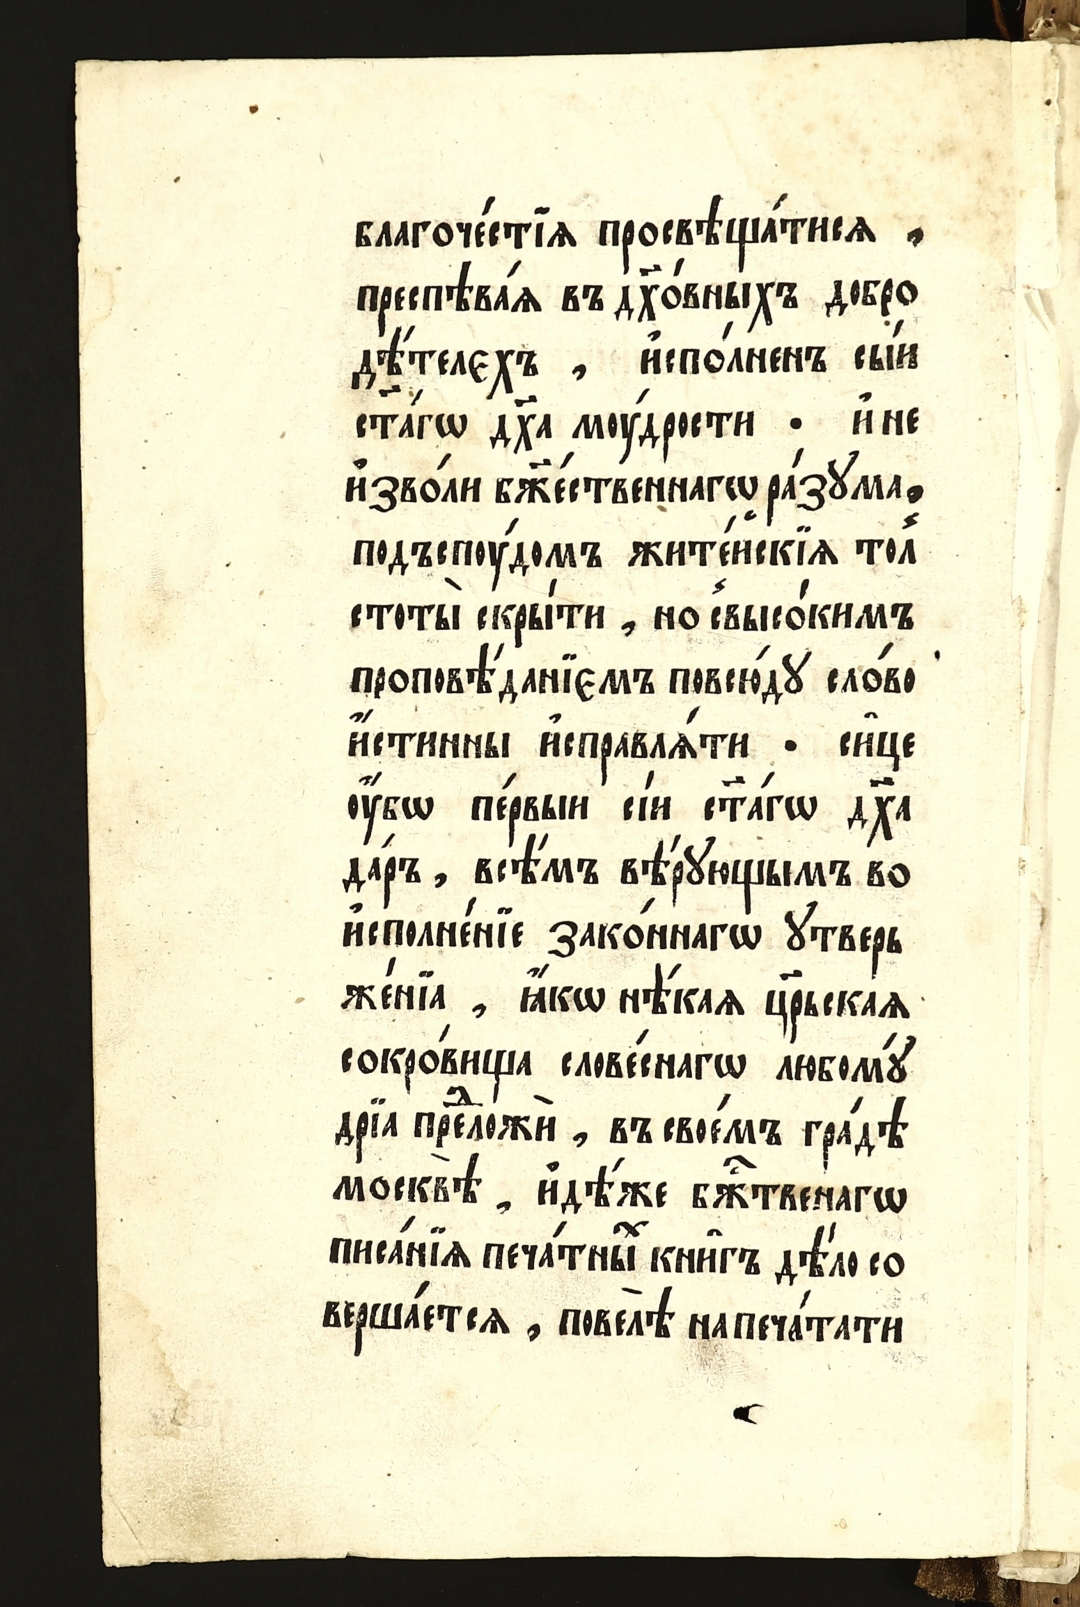 благоче́стїѧ просвѣща́тисѧ ,
преспѣва́ѧ въ дх҃о́вныхъ добро
дѣ́телєхъ , и҆спо́лненъ сы́и
ст҃а́гѡ дх҃а моу́дрости . и҆ не
и҆зво́ли бж҃е́ственнагѡ ра́зꙋма,
подъспоу́домъ жите́йскїѧ тол
стоты̀ скры́ти , но свысо́кимъ
проповѣ́данїємъ повсю́дꙋ сло́во
и҆́стинны и҆справлѧ́ти . си̑це
оу҆́бѡ пе́рвыи сі́и ст҃а́гѡ дх҃а
да́ръ , всѣ́мъ вѣ́рꙋющымъ во
и҆сполне́нїе зако́ннагѡ ꙋтверь
же́нїа , ꙗ҆́кѡ нѣ́каѧ цр҃ьскаѧ
сокро́вища слове́снагѡ любомꙋ́
дрїа преⷣложѝ , въ свое́мъ гра́дѣ
москвѣ̀ , и҆дѣ́же бжⷭ҇твенагѡ
писа́нїѧ печа́тныⷯ кни̑гъ дѣ́ло со
верша́етсѧ , повелѣ̀ напеча́тати